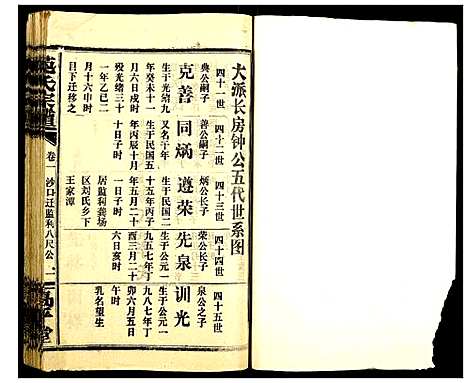 大派长房钟公五代世系图
四十一世
典公嗣子
克善
生于光绪九
年癸未十一
月六日戌时
殁光绪三十
一年乙巳二
月十六申时
目下迁移之
四十二世
善公嗣子
同炳
又名干年
生于民国五
年丙辰十月
十日子时
四十三世
炳公长子
遵荣
生于民国二
十五年丙子
年五月二十
一日子时
居监利龚场
区刘氏乡下
王家漳
四十四世
荣公长子
先泉
生于公元一
九五七年丁
酉三月二十
六日亥时
四十五世
泉公之子
训光
生于公元一
九八七年丁
卯六月五日
午时
乳名望生
范氏宗谱
卷一
沙口迁监利八尺公
一
高平堂